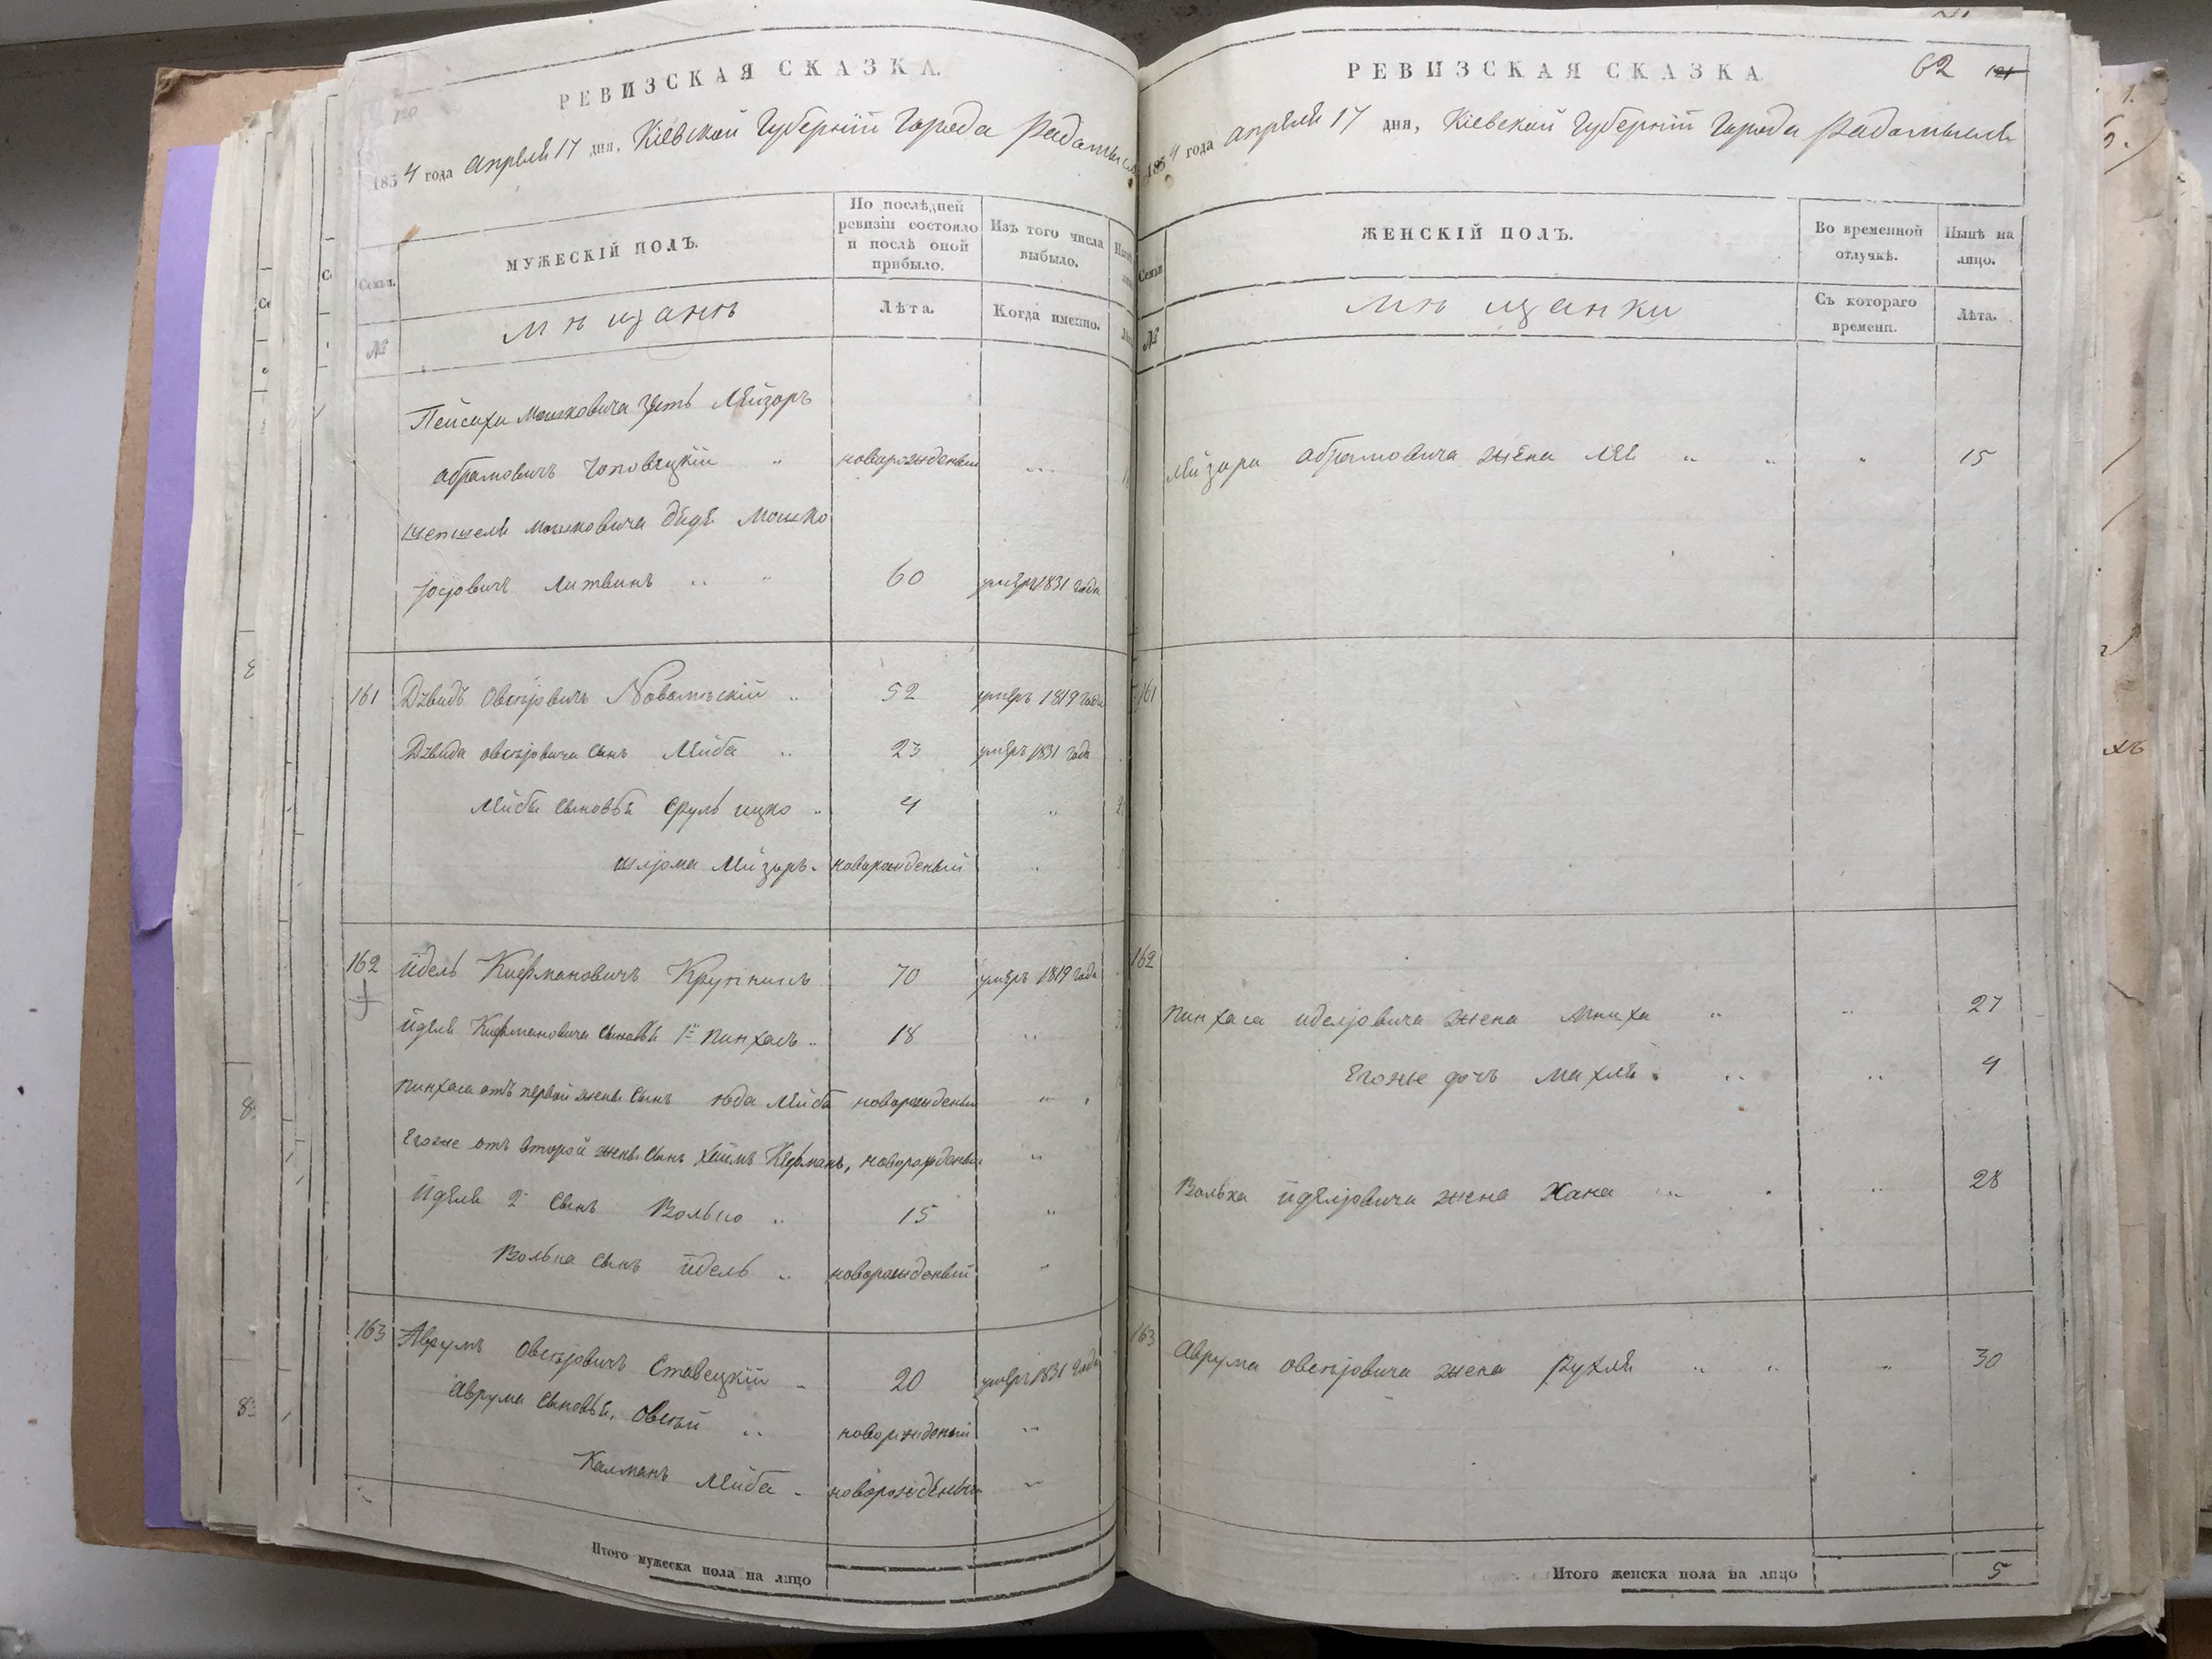 РЕВИЗСКАЯ СКАЗКА.
1854 года апреля 17 дня, Кіевской Губерніи Города Радомысля
Семьи.
№
МУЖЕСКІЙ ПОЛЪ.
По послѣдней ревизіи состояло и послѣ оной прибыло.
Изъ того числа выбыло.
мѣщанъ
Лѣта.
Когда именно.
Пейсаха Мошковича зять Лейзоръ
Абрамовичъ Чоповецкій " новорожденый "
Шепселя Мошковича дядя Мошко
Іосіовичъ Литвинъ " " 60 умеръ 1831 года
161 Дувидъ Овсѣіовичъ " 52 умеръ 1819 года
Дувида Овсѣіовича сынъ Лейба " 23 умеръ 1831 года
Лейбы сыновья Сруль Ицко " 4 "
Шліома Лейзоръ " новорожденый "
162 Идель Кифмановичъ 70 умеръ 1819 года
Иделя Кифмановича сыновья 1й Пинхасъ " 18 "
Пинхаса отъ первой жены сынъ Юда Лейба новорожденый "
Его же отъ второй жены сынъ Хаимъ новорожденый "
Иделя 2й сынъ Волько " 15 "
Волька сынъ Идель " новорожденый "
163 Аврумъ Овсѣіовичъ Ставецкій " 20 умеръ 1831 года
Аврума сыновья, Овсѣй " новорожденый "
Калманъ Лейба " новорожденый "
Итого мужеска пола на лицо
РЕВИЗСКАЯ СКАЗКА
62 121
1854 года апреля 17 дня, Кіевской Губерніи Города Радомысля
Семьи
№
ЖЕНСКІЙ ПОЛЪ.
Во временной отлучкѣ.
Нынѣ на лицо.
мѣщанки
Съ котораго времени.
Лѣта.
Лейзора Абрамовича жена Лея " " " 15
161
162
Пинхаса Иделіовича жена " " 27
Его же дочь Махля " " 4
Волька Иделіовича жена Хана " " 28
163 Аврума Овсѣіовича жена Рухля " " " 30
Итого женска пола на лицо 5